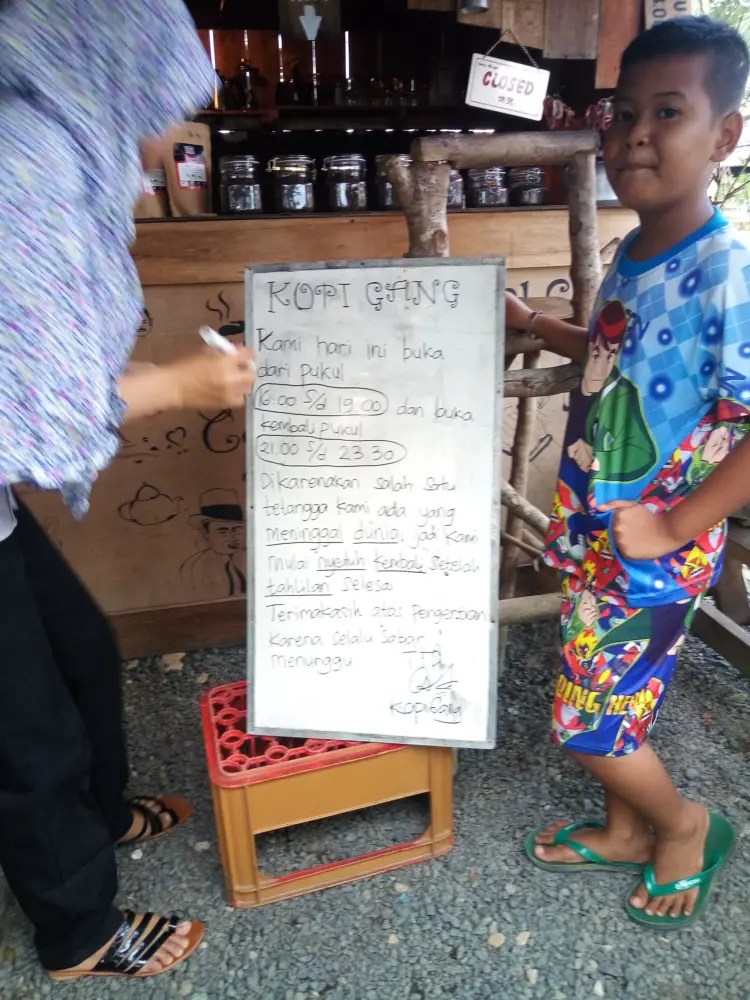 CLOSED
KOPI GANG
Kami hari ini buka
dari pukul
16.00 S/d 19.00 dan buka
kembali pukul
21.00 S/d 23.30
Dikarenakan salah satu
tetangga kami ada yang
meninggal dunia, jadi kami
mulai nyeduh kembali setelah
tahlilan selesai
Terimakasih atas pengertian
karena selalu sabar
menunggu
TTD
KopiGang